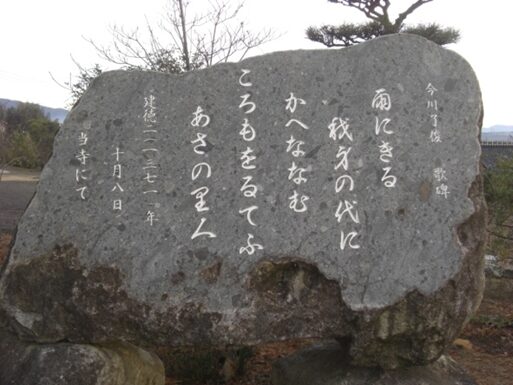 今川了俊 歌碑
雨にきる
我身の代に
かへななむ
ころもをるてふ
あさの里人
建徳二(一三七一)年
十月八日
当寺にて